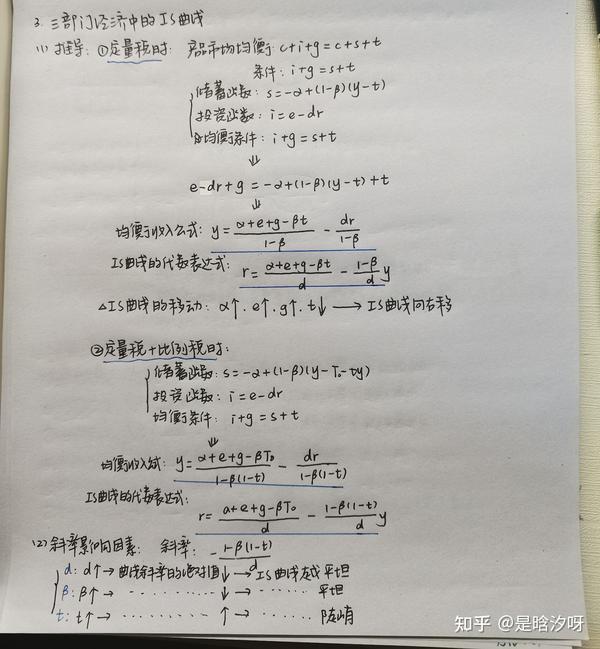 3. 三部门经济中的IS曲线
(1) 推导: ①定量税时: 产品市场均衡: c+i+g=c+s+t
条件: i+g=s+t
储蓄函数: s=-α+(1-β)(y-t)
投资函数: i=e-dr
均衡条件: i+g=s+t
⇓
e-dr+g=-α+(1-β)(y-t)+t
⇓
均衡收入公式: y=\frac{α+e+g-βt}{1-β} - \frac{dr}{1-β}
IS曲线的代数表达式: r=\frac{α+e+g-βt}{d} - \frac{1-β}{d}y
△IS曲线的移动: α↑. e↑. g↑. t↓ → IS曲线向右移
②定量税+比例税时:
储蓄函数: s=-α+(1-β)(y-T₀-ty)
投资函数: i=e-dr
均衡条件: i+g=s+t
⇓
均衡收入公式: y=\frac{α+e+g-βT₀}{1-β(1-t)} - \frac{dr}{1-β(1-t)}
IS曲线的代数表达式:
r=\frac{a+e+g-βT₀}{d} - \frac{1-β(1-t)}{d}y
(2) 斜率影响因素: 斜率: -\frac{1-β(1-t)}{d}
d: d↑→曲线斜率的绝对值↓→IS曲线越平坦
β: β↑→ ········ ↓→ ······ 平坦
t: t↑→ ········ ↑→ ······ 陡峭
知乎 @是晗汐呀